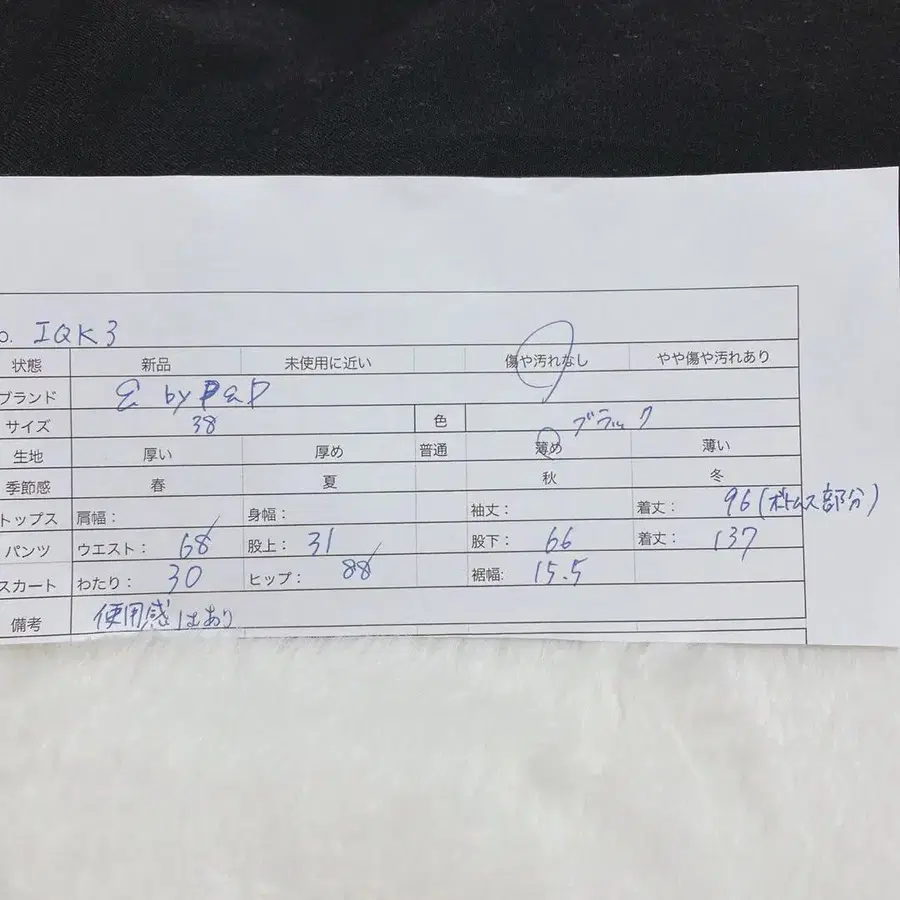 o. IQK3
状態 新品 未使用に近い 傷や汚れなし やや傷や汚れあり
ブランド E by P&D
サイズ 38 色 ブラック
生地 厚い 厚め 普通 薄め 薄い
季節感 春 夏 秋 冬
トップス 肩幅： 身幅： 袖丈： 着丈： 96(ボトムス部分)
パンツ ウエスト： 68 股上： 31 股下： 66 着丈： 137
スカート わたり： 30 ヒップ： 88 裾幅: 15.5
備考 使用感はあり